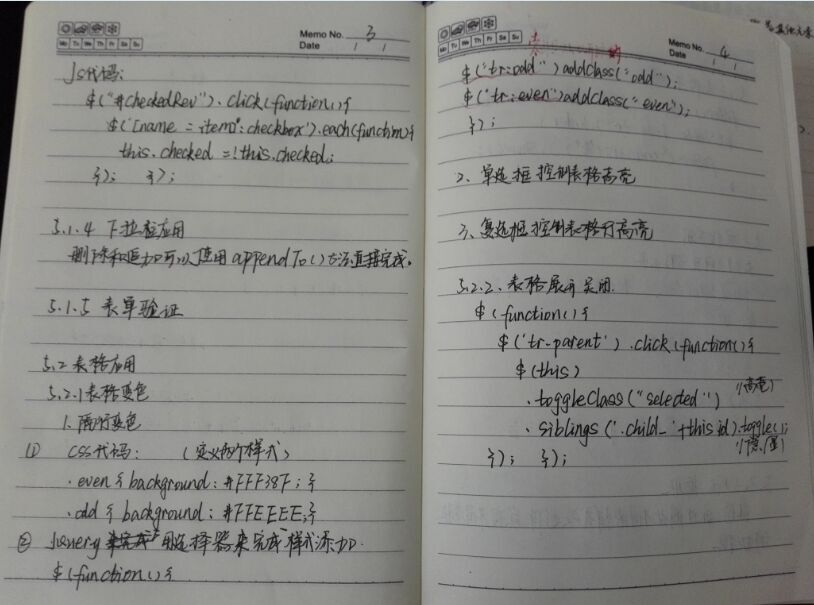 Memo No. 3
Mo Tu We Th Fr Sa Su
Date / /
JS代码:
$("#checkedRev").click(function(){
$('[name=item]:checkbox').each(function(){
this.checked =!this.checked;
}); });
5.1.4 下拉框应用
删除和追加可以使用appendTo()方法直接完成。
5.1.5 表单验证
5.2 表格应用
5.2.1表格变色
1.隔行变色
① CSS代码: (定义两个样式)
.even { background: #FFF38F; }
.odd { background: #FFEEEE;}
② Jquery 用选择器来完成样式添加
$(function(){
Memo No. 4
Mo Tu We Th Fr Sa Su
Date / /
$("tr:odd")addClass("odd");
$("tr:even")addClass("even");
});
2、单选框控制表格高亮
3、复选框控制表格行高亮
5.2.2、表格展开关闭
$(function(){
$('tr.parent').click(function(){
$(this)
.toggleClass("selected") //高亮
.siblings('.child_'+this.id).toggle();
//隐/显
}); });